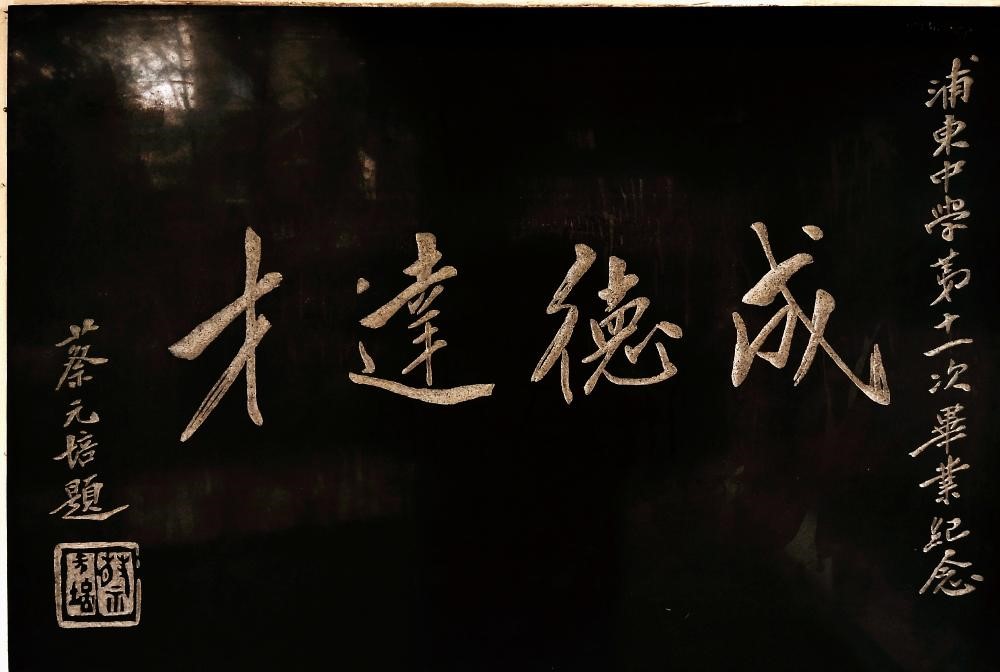 浦東中學第十一次畢業紀念
成德達才
蔡元培題